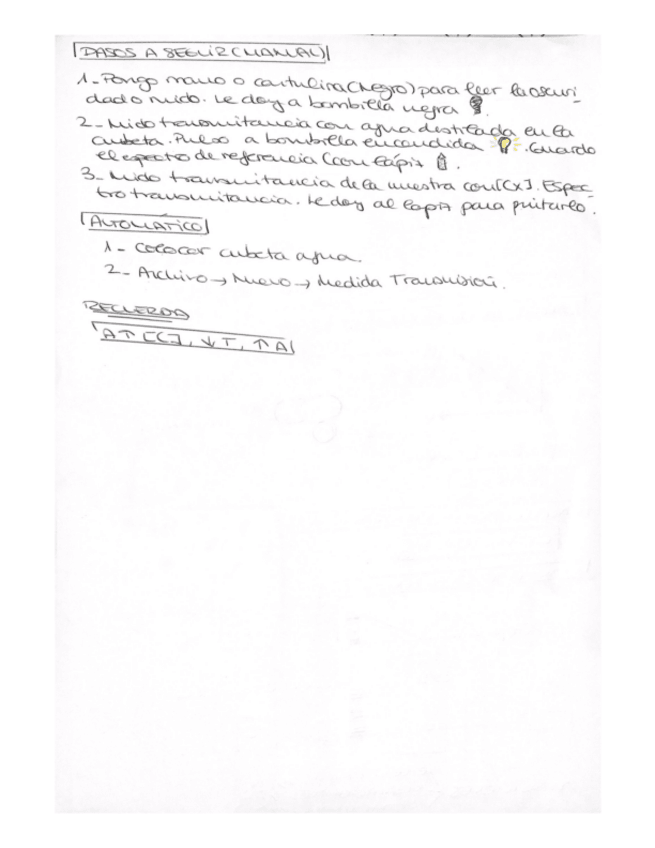 PASOS A SEGUIR (MANUAL)
1- Pongo mano o cartulina (Negro) para leer la oscuri-
dad o ruido. Le doy a bombilla negra
2- Mido transmitancia con agua destilada en la
cubeta. Pulso a bombilla encendida . Guardo
el espectro de referencia (con lápiz
3- Mido transmitancia de la muestra con [Cx]. Espec-
tro transmitancia. Le doy al lapiz para pintarlo.
AUTOMÁTICO
1- Colocar cubeta agua.
2- Archivo → Nuevo → Medida Transmisión.
RECUERDA
A ↑ [C], ↓ T, ↑ A